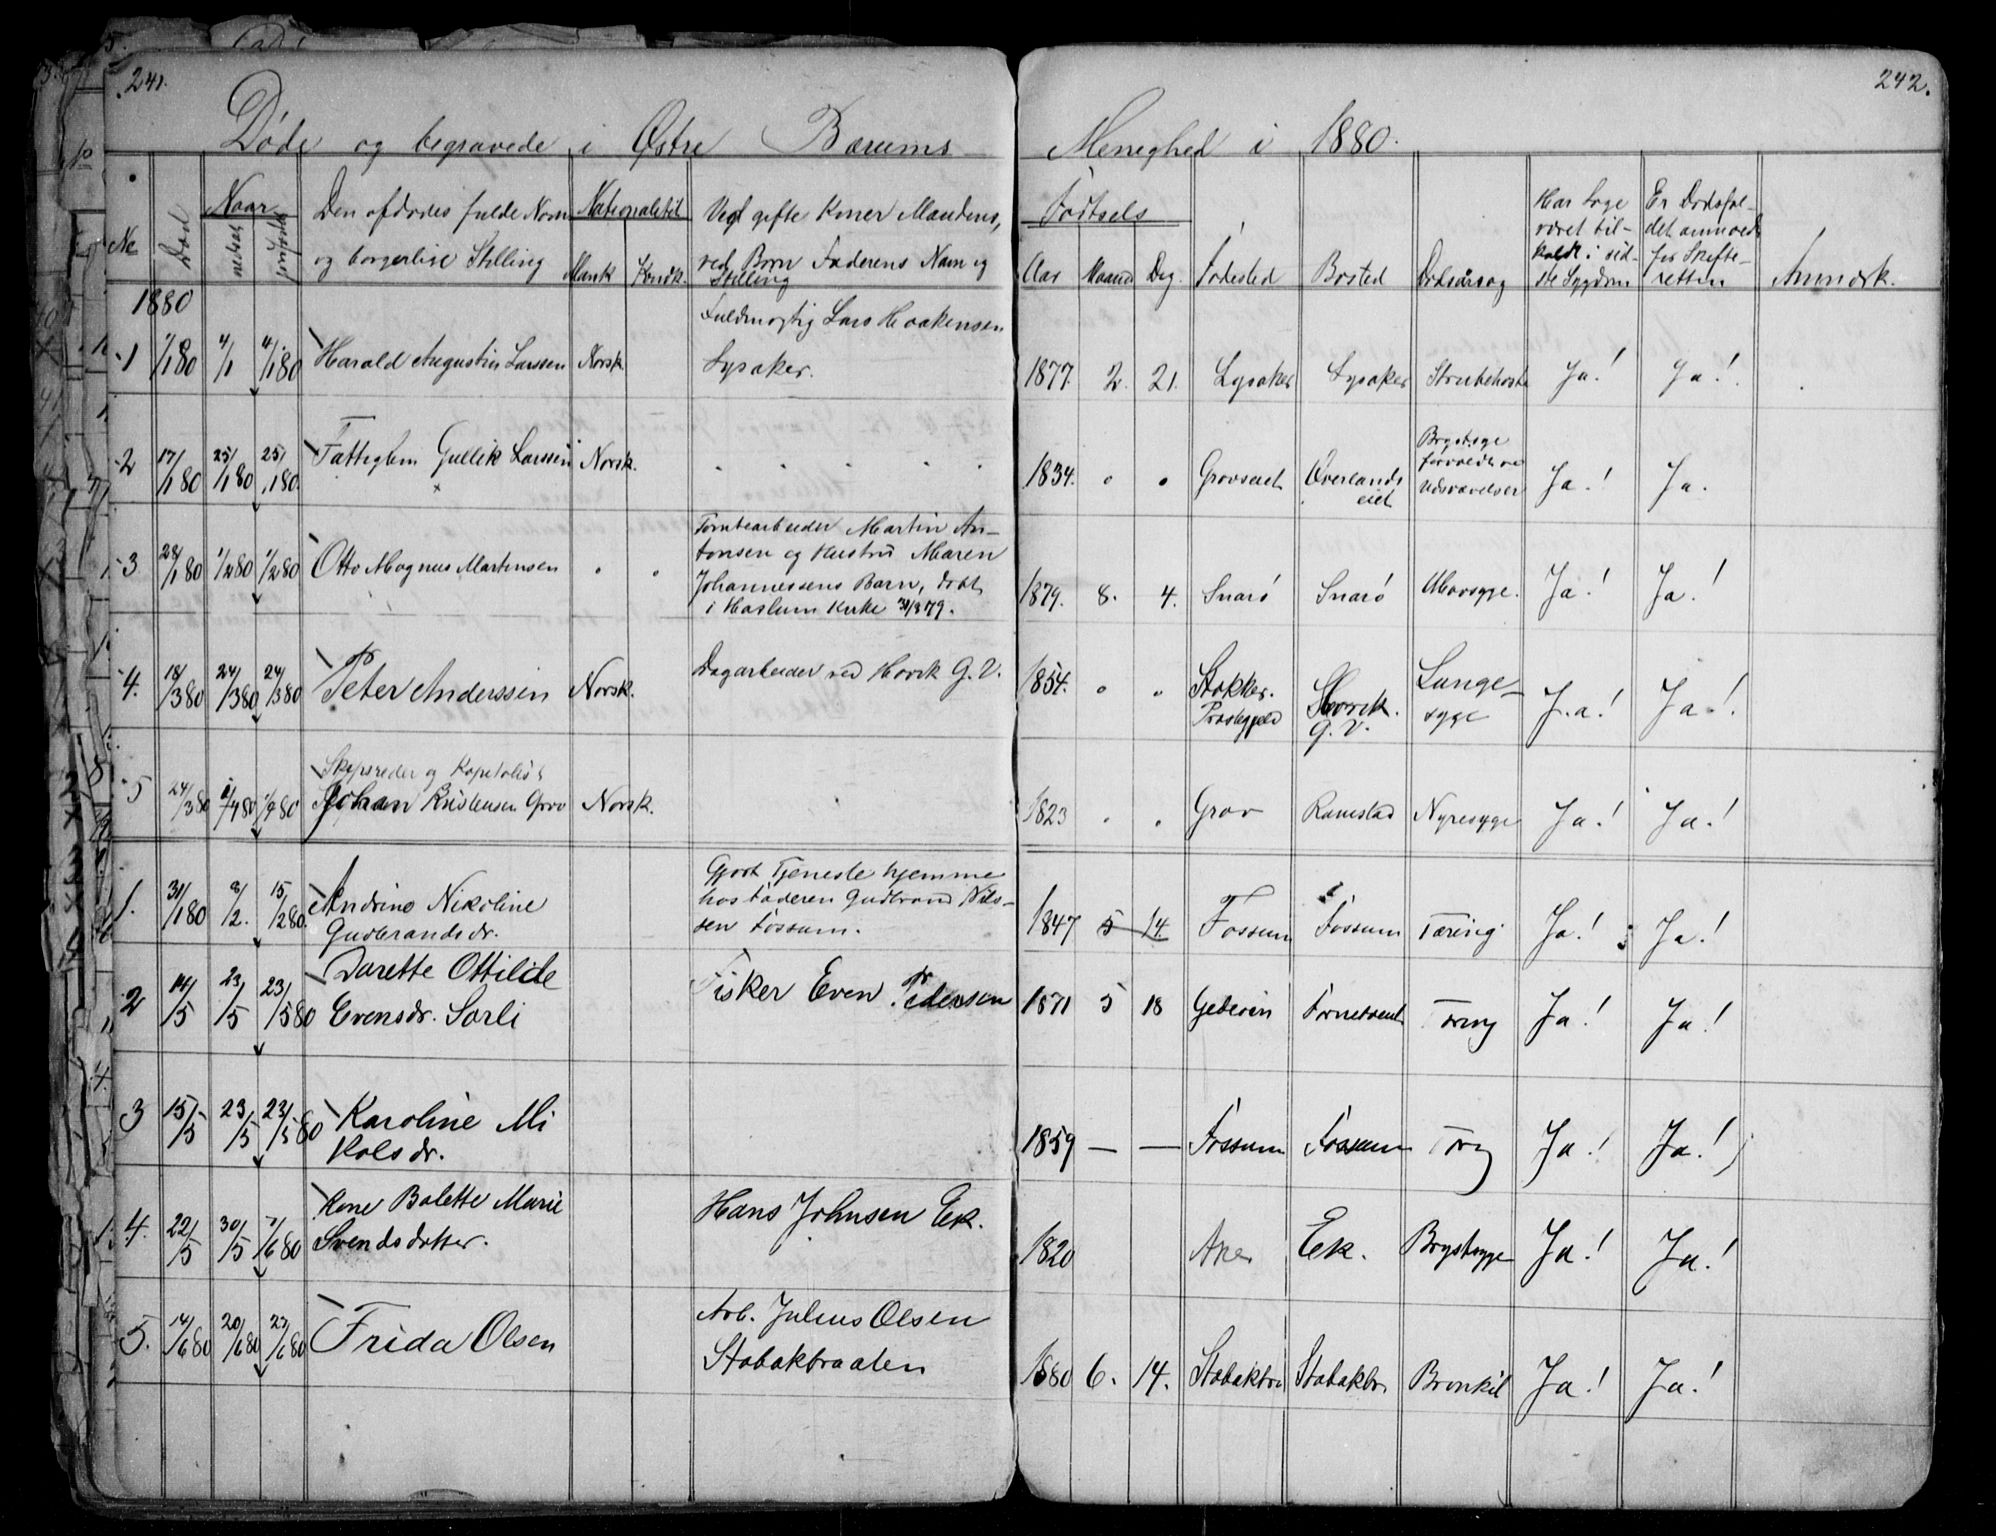 241.
242.
Døde og begravede i Østre Bærums Menighed i 1880.
No
Død
Naar
nedsat
jordfæstet
Den afdødes fulde Navn
og borgerlige Stilling
Nationalitet
Mank
Kvindk.
Ved gifte Koner Mandens,
ved Børn Faderens Navn og
Stilling
Fødsels
Aar
Maaned
Dag.
Fødested
Bosted
Dødsårsag
Har Læge
været til-
kaldt i sid-
ste Sygdom
Er Dødsfal-
det anmeldt
for Skifte-
retten
Anmærk.
1880
1
4/1
4/1 80
Harald Augustin Larssen
Norsk.
Fuldmægtig Lars Haakensen
Lysaker.
1877. 2. 21.
Lysaker
Lysaker
Strubehoste
Ja!
Ja!
2
17/1 80
25/1 80
25/1 80.
Fattiglem Gullik Larssen
Norsk.
1834.
Grovseiet
Øverlands
eiet
Brystsyge
Udsvævelser
Ja!
Ja.
3
28/1 80
1/2 80
1/2 80
Otto Magnus Martensen
Tomtearbeider Martin An-
tonsen og Hustru Maren
Johannessens Barn, døbt
i Haslum Kirke 31/8 79.
1879. 8. 4.
Snarø
Snarø
Mavsyge.
Ja!
Ja!
4.
18/3 80
24/3 80
24/3 80
Peter Anderssen
Norsk.
Dagarbeider ved Høvik G.V.
1854.
Stokker.
Præstegjeld
Høvik
G.V.
Lunge-
syge
Ja!
Ja!
5
24/3 80
1/4 80
1/4 80
Skipsreder og Kapitalist
Johan Kristensen Grov
Norsk.
1823
Grov
Ramstad
Nyresyge
Ja!
Ja!
1.
31/1 80
8/2.
15/2 80.
Andrine Nikoline
Gudbrandsdr.
Gjort Tjeneste hjemme
hos Faderen Gudbrand Nils-
sen Fossum.
1847 5 14.
Fossum
Fossum
Tæring
Ja!
Ja!
2
14/5
23/5
23/5 80
Dorette Ottilde
Evensdr. Sørli
Fisker Even Pedersen
1871 5 18
Forneboeiet
Tæring
Ja!
Ja!
3
15/5
23/5
23/5 80
Karoline Mi
kolsdr.
1859 — —
Fossum
Fossum
Tæring
Ja!
Ja!
4.
22/5
30/5
7/6 80
Kone Bolette Marie
Svendsdatter.
Hans Johnsen Ek.
1820
Aker
Ek.
Brystsyge
Ja!
Ja!
5.
14/6 80
20/6 80
27/6 80
Frida Olsen
Arb. Julius Olsen
Stabækbraaten
1880 6. 14.
Stabækbr
Stabækbr.
Bronkit
Ja!
Ja!